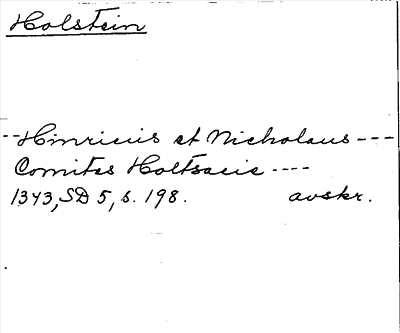 Holstein
--Hinricus et Nicholaus---
Comites Holtsacie----
1343, SD 5, s. 198. avskr.